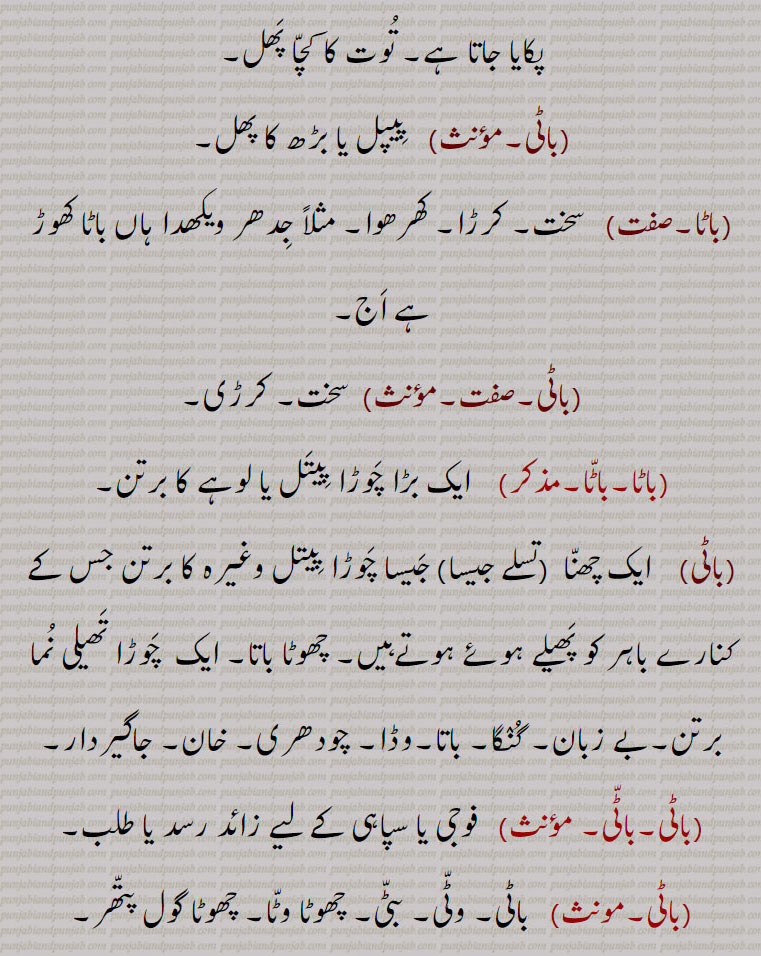 پکایا جاتا ہے۔ تُوت کا کچّا پَھل۔
(باٹی۔مؤنث) پِیپل یا بڑھ کا پھل۔
(باٹا۔صفت) سخت۔ کرڑا۔ کھرھوا۔ مثلاً جِدھر ویکھدا ہاں باٹا کھوڑ
ہے اَج۔
(باٹی۔صفت۔مؤنث) سخت۔ کرڑی۔
(باٹا۔باٹّا۔مذکر) ایک بڑا چَوڑا پِیتَل یا لوہے کا برتن۔
(باٹی) ایک چھنّا (تسلے جیسا) جَیسا چَوڑا پِیتل وغیرہ کا برتن جس کے
کنارے باہر کو پَھیلے ہوئے ہوتےہیں۔ چھوٹا باتا۔ ایک چَوڑا تَھیلی نُما
برتن۔بے زبان۔ گُنگا۔ باتا۔وڈا۔ چودھری۔ خان۔ جاگیردار۔
(باٹی۔باٹّی۔ مؤنث) فوجی یا سپاہی کے لیے زائد رسد یا طلب۔
(باٹی۔مونث) باٹی۔ وٹّی۔ سٹّی۔ چھوٹا وٹّا۔ چھوٹا گول پتھّر۔